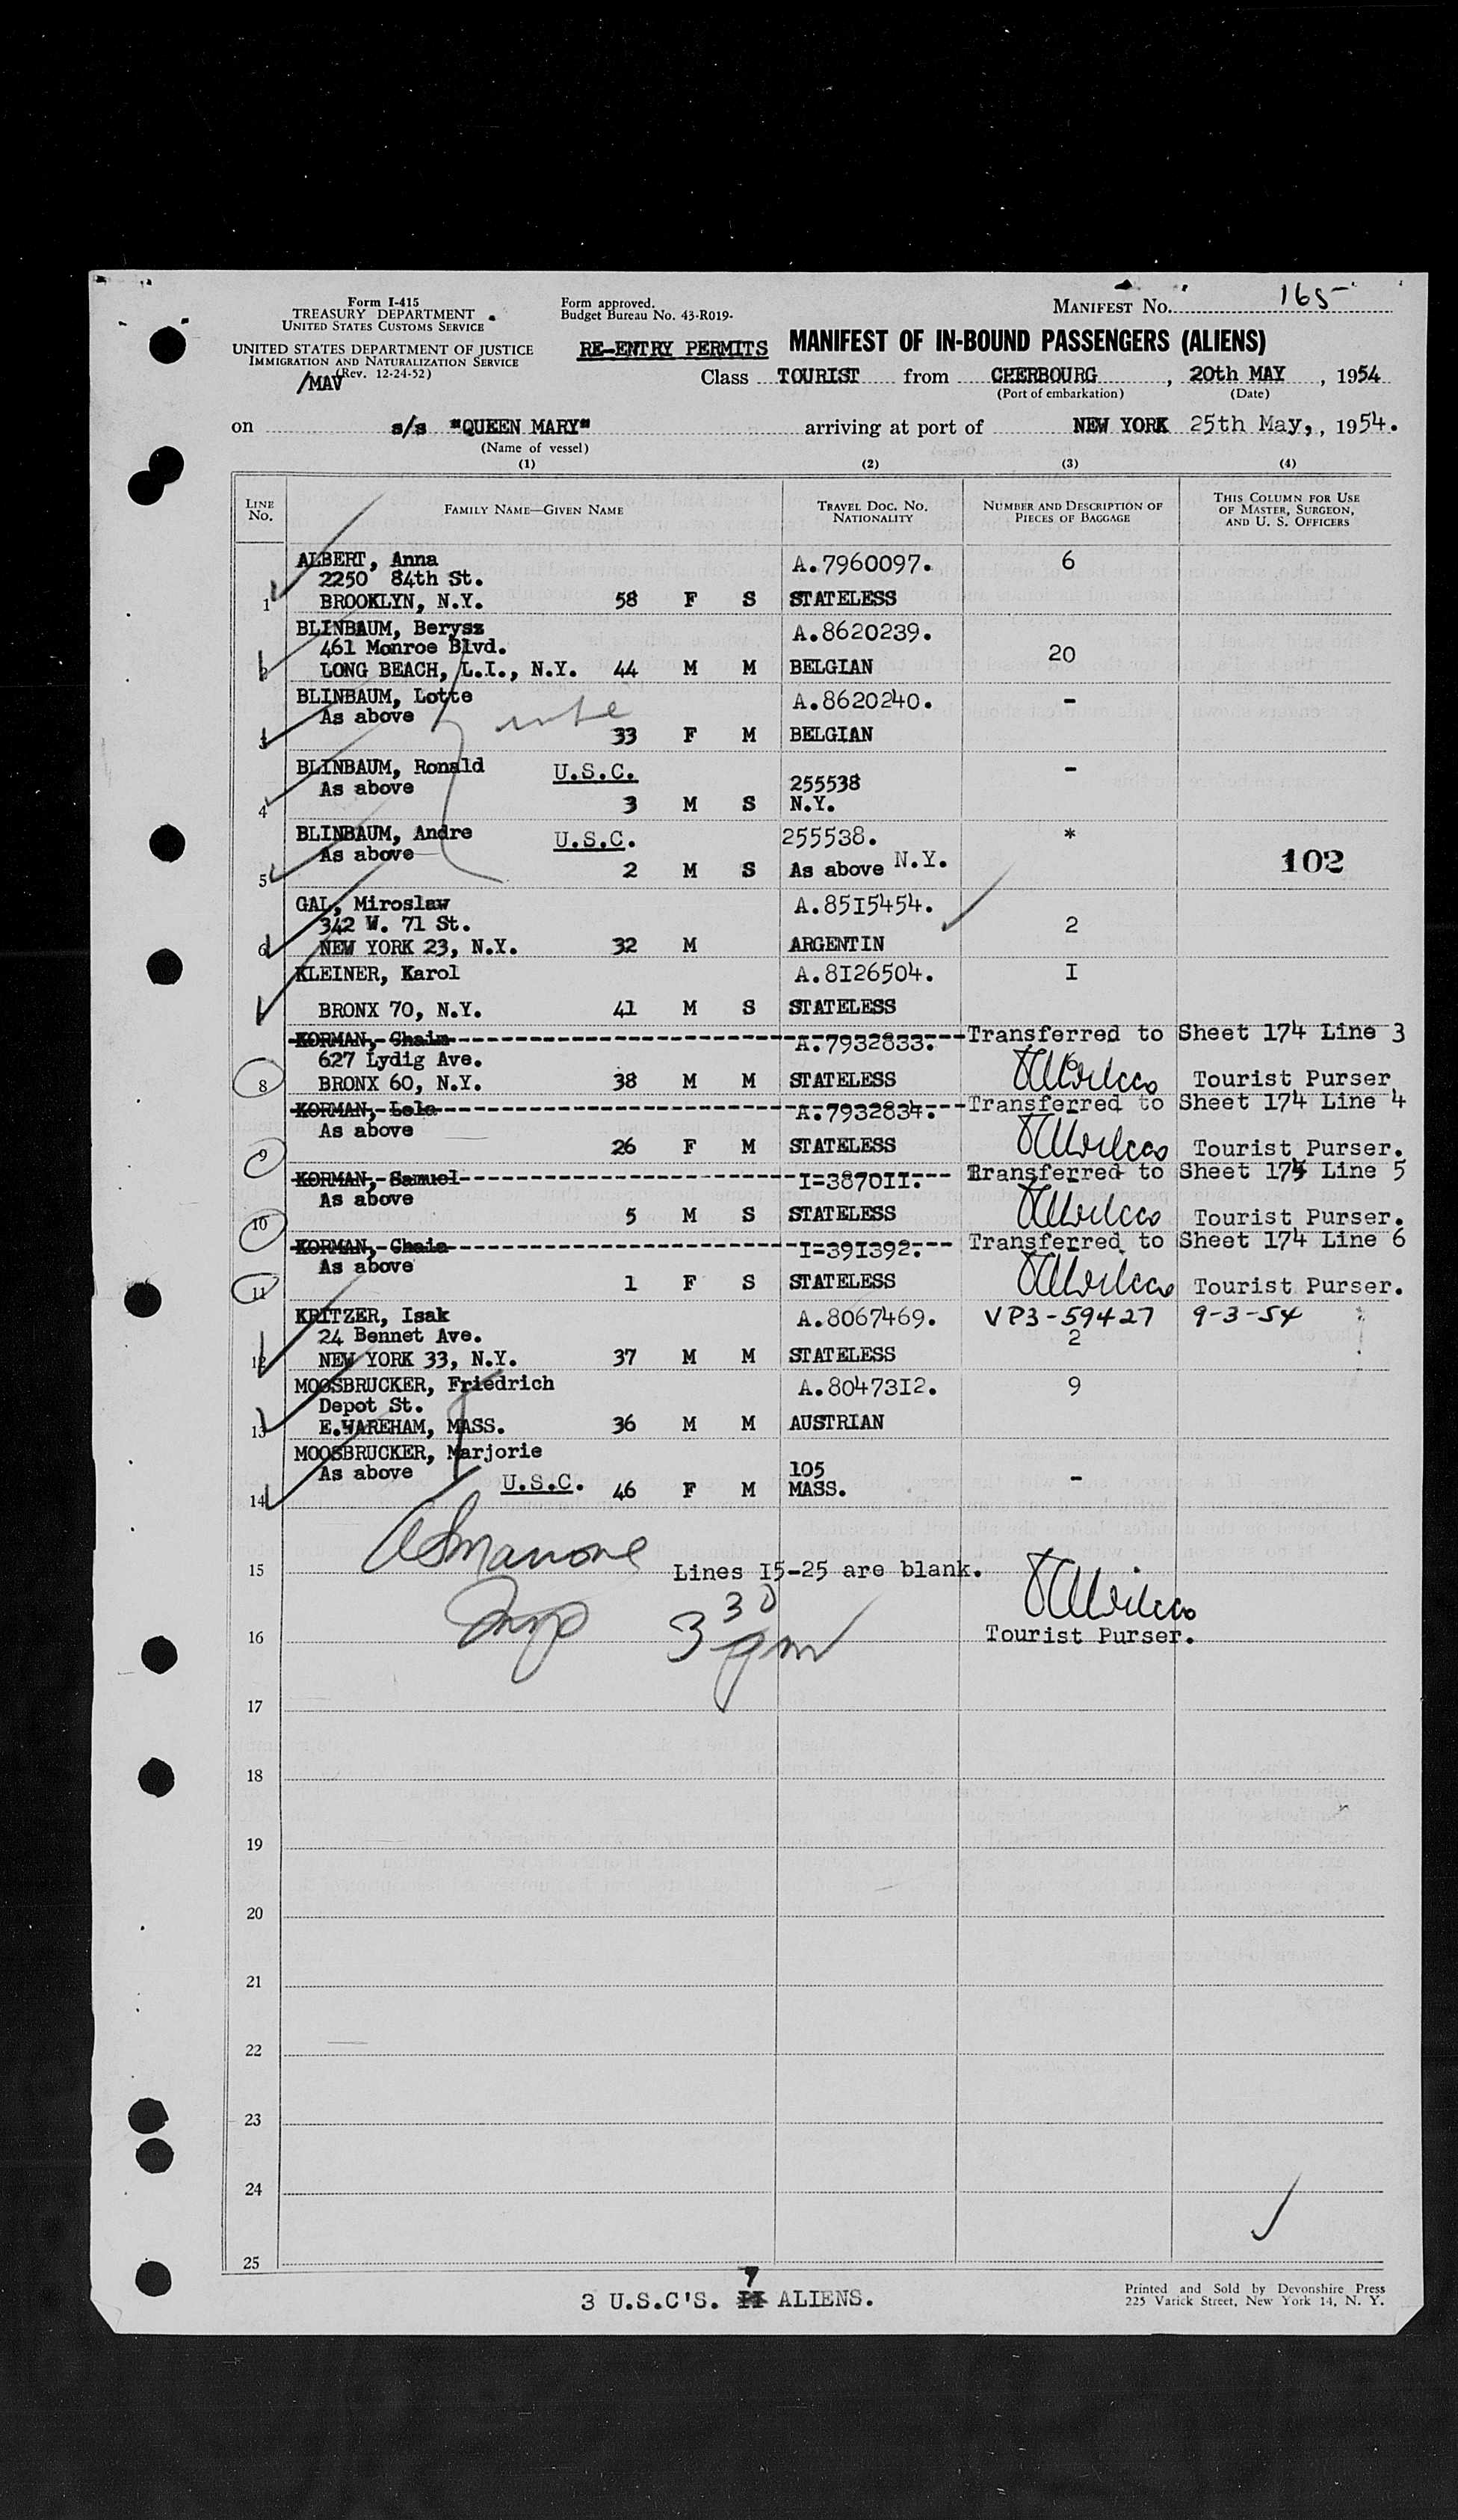 Form I-415
TREASURY DEPARTMENT
UNITED STATES CUSTOMS SERVICE
UNITED STATES DEPARTMENT OF JUSTICE
IMMIGRATION AND NATURALIZATION SERVICE
(Rev. 12-24-52)
/MAV
Form approved.
Budget Bureau No. 43-R019-
MANIFEST No. 165
RE-ENTRY PERMITS MANIFEST OF IN-BOUND PASSENGERS (ALIENS)
Class TOURIST from CHERBOURG, 20th MAY, 1954
(Port of embarkation) (Date)
on s/s "QUEEN MARY" arriving at port of NEW YORK 25th May,, 1954.
(Name of vessel)
(1) (2) (3) (4)
LINE No. FAMILY NAME—GIVEN NAME TRAVEL DOC. NO. NATIONALITY NUMBER AND DESCRIPTION OF PIECES OF BAGGAGE THIS COLUMN FOR USE OF MASTER, SURGEON, AND U. S. OFFICERS
ALBERT, Anna A.7960097. 6
2250 84th St.
1 BROOKLYN, N.Y. 58 F S STATELESS
BLINBAUM, Berysz A.8620239.
461 Monroe Blvd. 20
2 LONG BEACH, L.I., N.Y. 44 M M BELGIAN
BLINBAUM, Lotte A.8620240. -
As above
3 33 F M BELGIAN
BLINBAUM, Ronald U.S.C. -
As above 255538
4 3 M S N.Y.
BLINBAUM, Andre U.S.C. 255538. *
As above 102
5 2 M S As above N.Y.
GAL, Miroslaw A.85I5454.
342 W. 71 St. 2
6 NEW YORK 23, N.Y. 32 M ARGENTIN
KLEINER, Karol A.8I26504. I
BRONX 70, N.Y. 41 M S STATELESS
KORMAN, Chaim A.7932833. Transferred to Sheet 174 Line 3
627 Lydig Ave.
8 BRONX 60, N.Y. 38 M M STATELESS Tourist Purser
KORMAN, Lola A.7932834. Transferred to Sheet 174 Line 4
As above
9 26 F M STATELESS Tourist Purser.
KORMAN, Samuel I=3870II. Transferred to Sheet 174 Line 5
As above
10 5 M S STATELESS Tourist Purser.
KORMAN, Chaia I=39I392. Transferred to Sheet 174 Line 6
As above
11 1 F S STATELESS Tourist Purser.
KRITZER, Isak A.8067469. VP3-59427 9-3-54
24 Bennet Ave. 2
12 NEW YORK 33, N.Y. 37 M M STATELESS
MOOSBRUCKER, Friedrich A.80473I2. 9
Depot St.
13 E.WAREHAM, MASS. 36 M M AUSTRIAN
MOOSBRUCKER, Marjorie
As above 105 -
14 U.S.C. 46 F M MASS.
15 Lines I5-25 are blank.
3 30 pm
16 Tourist Purser.
17
18
19
20
21
22
23
24
25
3 U.S.C'S. II 7 ALIENS.
Printed and Sold by Devonshire Press
225 Varick Street, New York 14, N. Y.